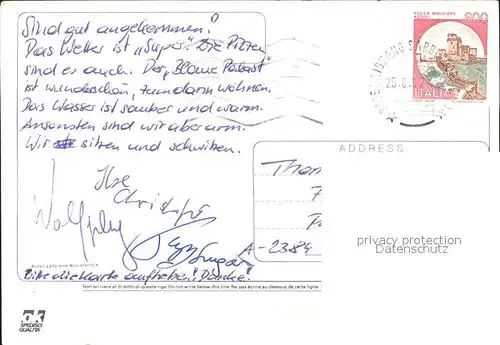 Sind gut angekommen!
Das Wetter ist „Super". Die Pizzen
sind es auch. Der „Blaue Palast"
ist wunderschön, tun darin wohnen.
Das Wasser ist sauber und warm.
Ansonsten sind wir aber arm.
Wir sitzen und schwitzen.
Ilse
Christoph
Wolfgang
Bitte die Karte aufheben! Danke!
ROCCA MAGGIORE
ASSISI
600
ITALIA
ADDRESS
A-2384
privacy protection
Datenschutz
Non scrivere al di sotto di questa riga - Do not write below this line - Ne pas écrire au dessous de cette ligne
OK
SPEDISCI
QUALITÀ